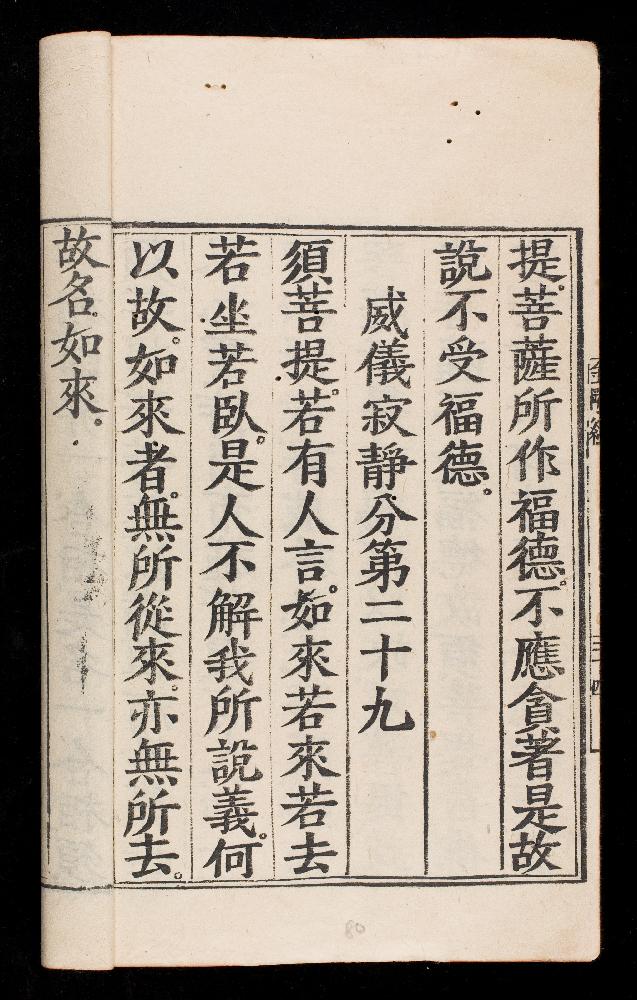 提菩薩所作福德。不應貪著是故
說不受福德。
威儀寂靜分第二十九
須菩提。若有人言。如來若來若去
若坐若臥。是人不解我所說義。何
以故。如來者。無所從來。亦無所去。
故名如來。
80